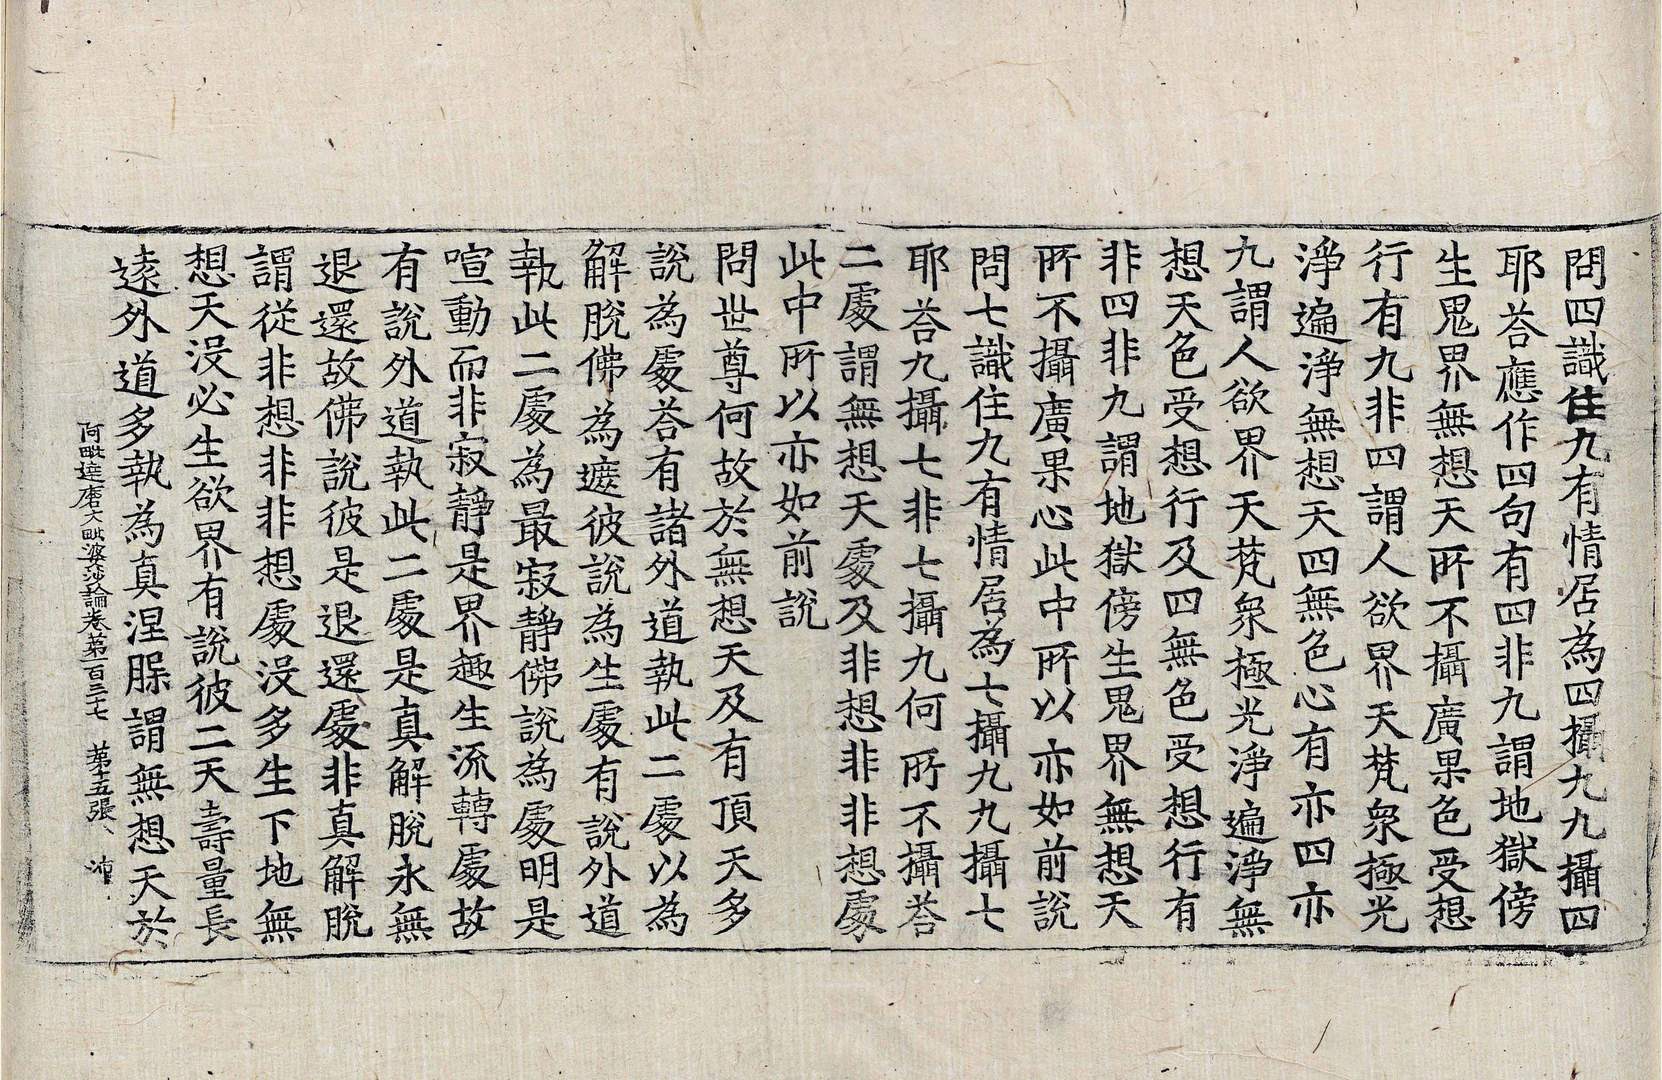 問四識住九有情居為四攝九九攝四
耶荅應作四句有四非九謂地獄傍
生鬼界無想天所不攝廣果色受想
行有九非四謂人欲界天梵衆極光
淨遍淨無想天四無色心有亦四亦
九謂人欲界天梵衆極光淨遍淨無
想天色受想行及四無色受想行有
非四非九謂地獄傍生鬼界無想天
所不攝廣果心此中所以亦如前說
問七識住九有情居為七攝九九攝七
耶荅九攝七非七攝九何所不攝荅
二處謂無想天處及非想非非想處
此中所以亦如前說
問世尊何故於無想天及有頂天多
說為處荅有諸外道執此二處以為
解脫佛為遮彼說為生處有說外道
執此二處為最寂靜佛說為處明是
喧動而非寂靜是界趣生流轉處故
有說外道執此二處是真解脫永無
退還故佛說彼是退還處非真解脫
謂從非想非非想處没多生下地無
想天没必生欲界有說彼二天壽量長
遠外道多執為真涅槃謂無想天於
阿毗達磨大毗婆沙論卷第一百三十七 第十五張 沛